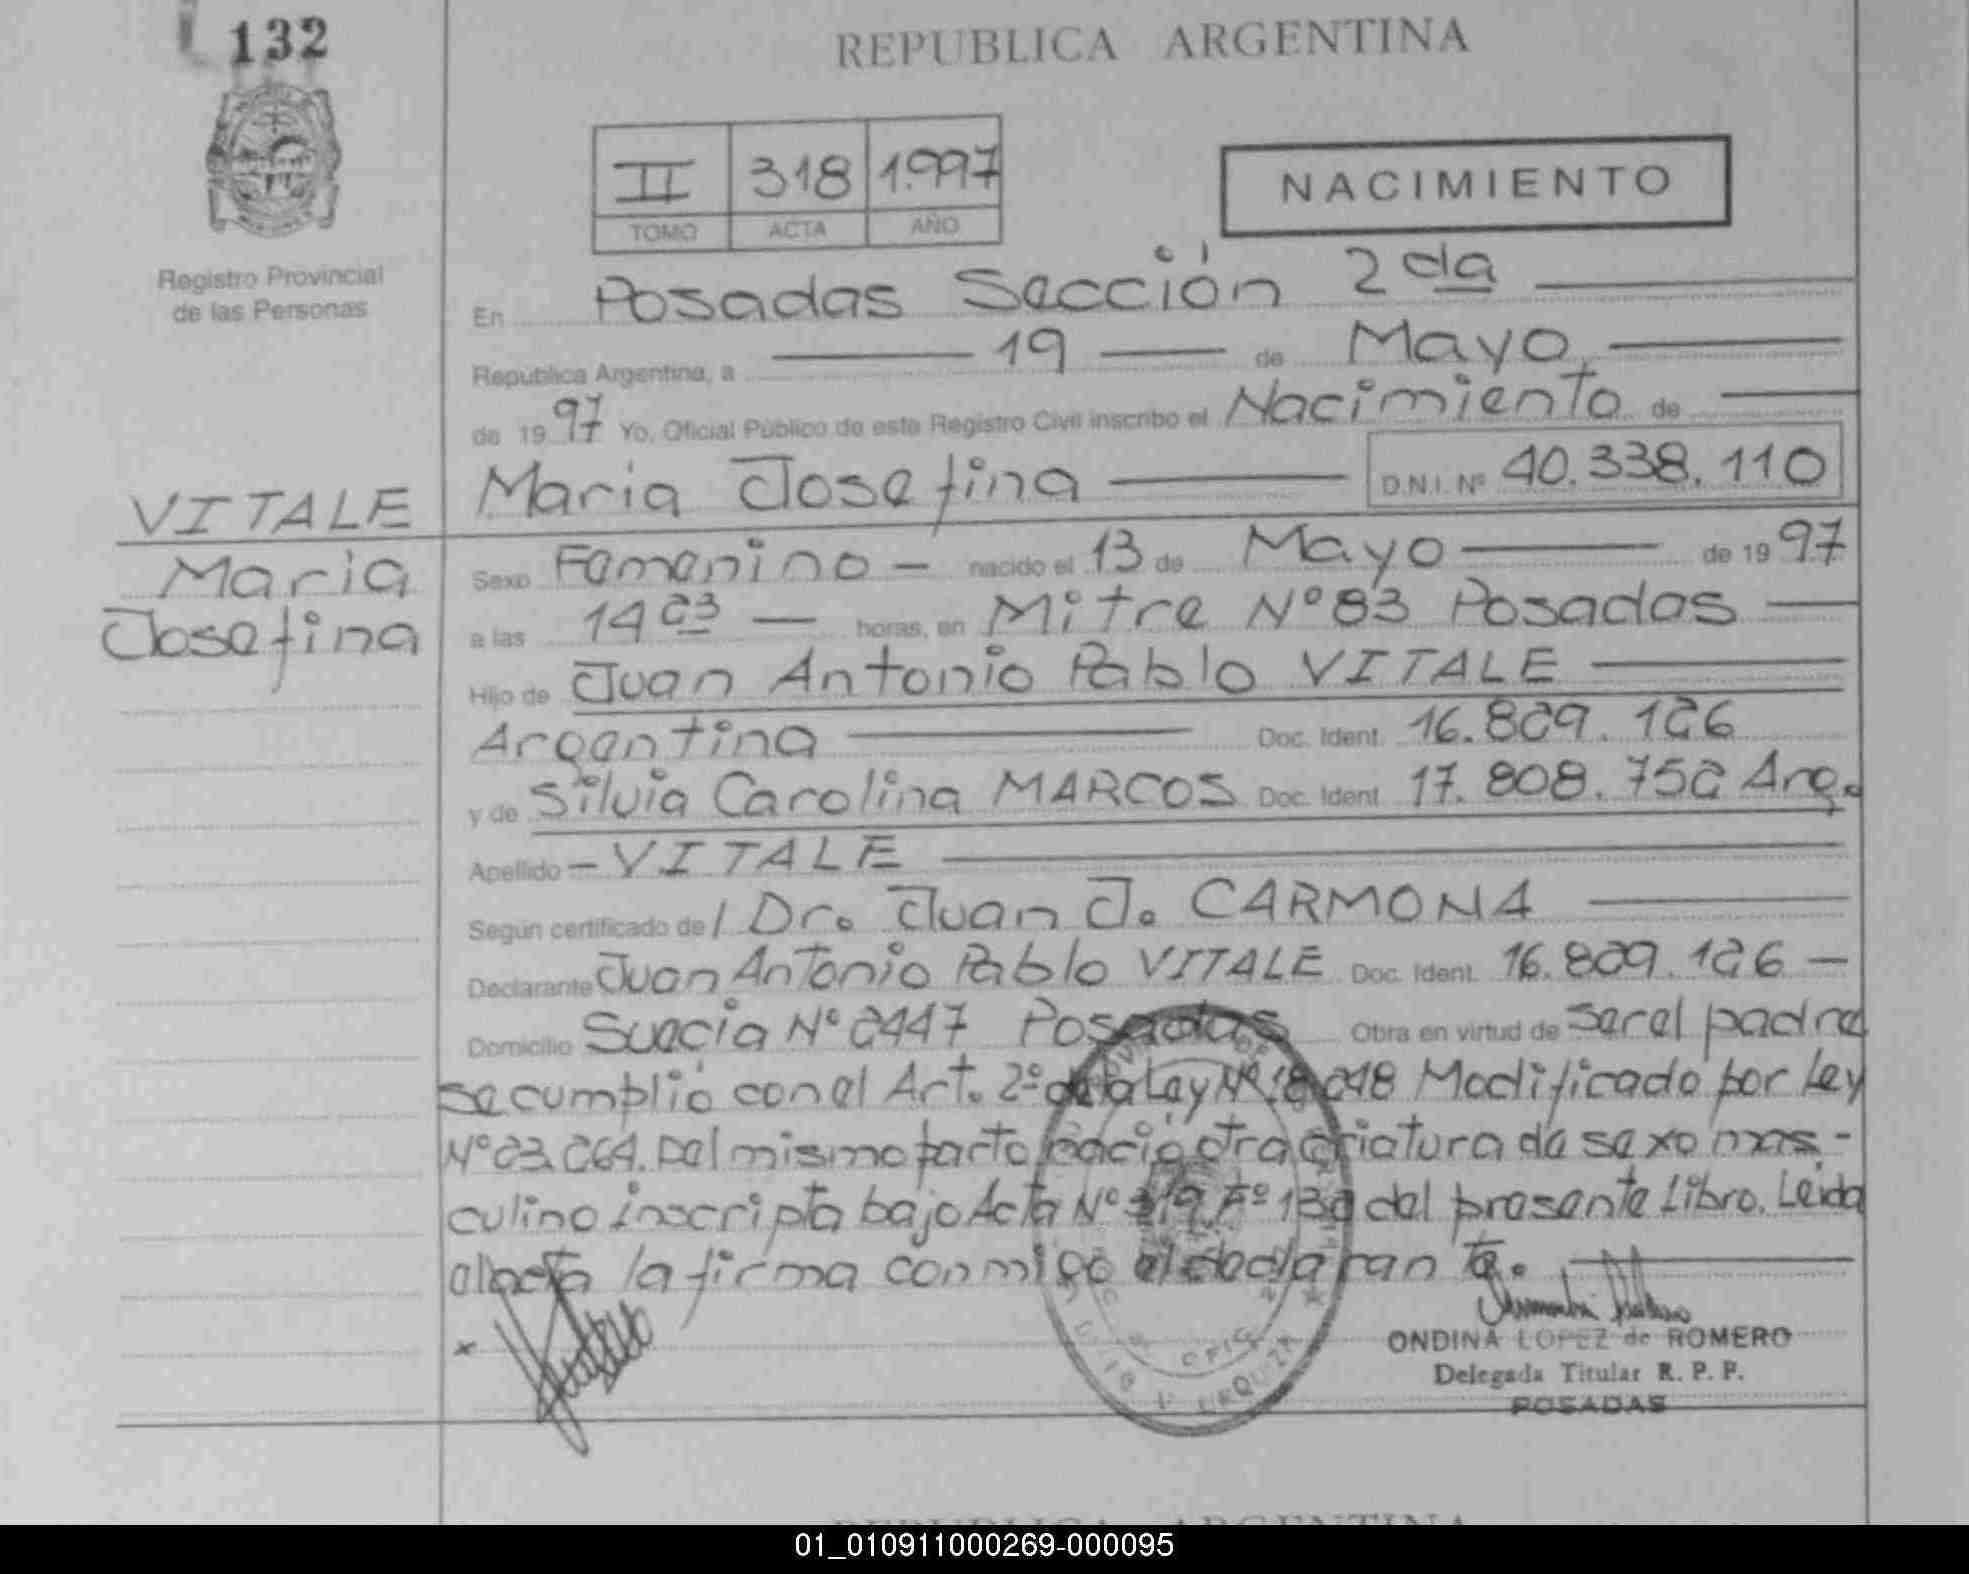 132
REPUBLICA ARGENTINA
II 318 1.997
TOMO ACTA AÑO
NACIMIENTO
Registro Provincial
de las Personas
En Posadas Sección 2da
República Argentina, a 19 de Mayo
de 1997 Yo, Oficial Público de este Registro Civil inscribo el Nacimiento de
Maria Josefina D.N.I. Nº 40.338.110
VITALE
Maria
Josefina
Sexo Femenino - nacido el 13 de Mayo de 1997
a las 14 23 horas, en Mitre Nº 83 Posadas
Hijo de Juan Antonio Pablo VITALE
Argentina Doc. Ident. 16.829.126
y de Silvia Carolina MARCOS Doc. Ident. 17.808.752 Arg.
Apellido - VITALE
Según certificado de / Dr. Juan J. CARMONA
Declarante Juan Antonio Pablo VITALE Doc. Ident. 16.829.126 -
Domicilio Suecia Nº 2447 Posadas Obra en virtud de ser el padre
se cumplió con el Art. 2º de la Ley Nº 18.248 Modificado por Ley
Nº 23.264. Del mismo parto nació otra criatura de sexo mas-
culino inscripta bajo Acta Nº 319 Fº 132 del presente Libro. Leida
el acta la firma conmigo el declarante.
x
URQUIZA
ONDINA LOPEZ de ROMERO
Delegada Titular R. P. P.
POSADAS
REPUBLICA ARGENTINA
01_010911000269-000095